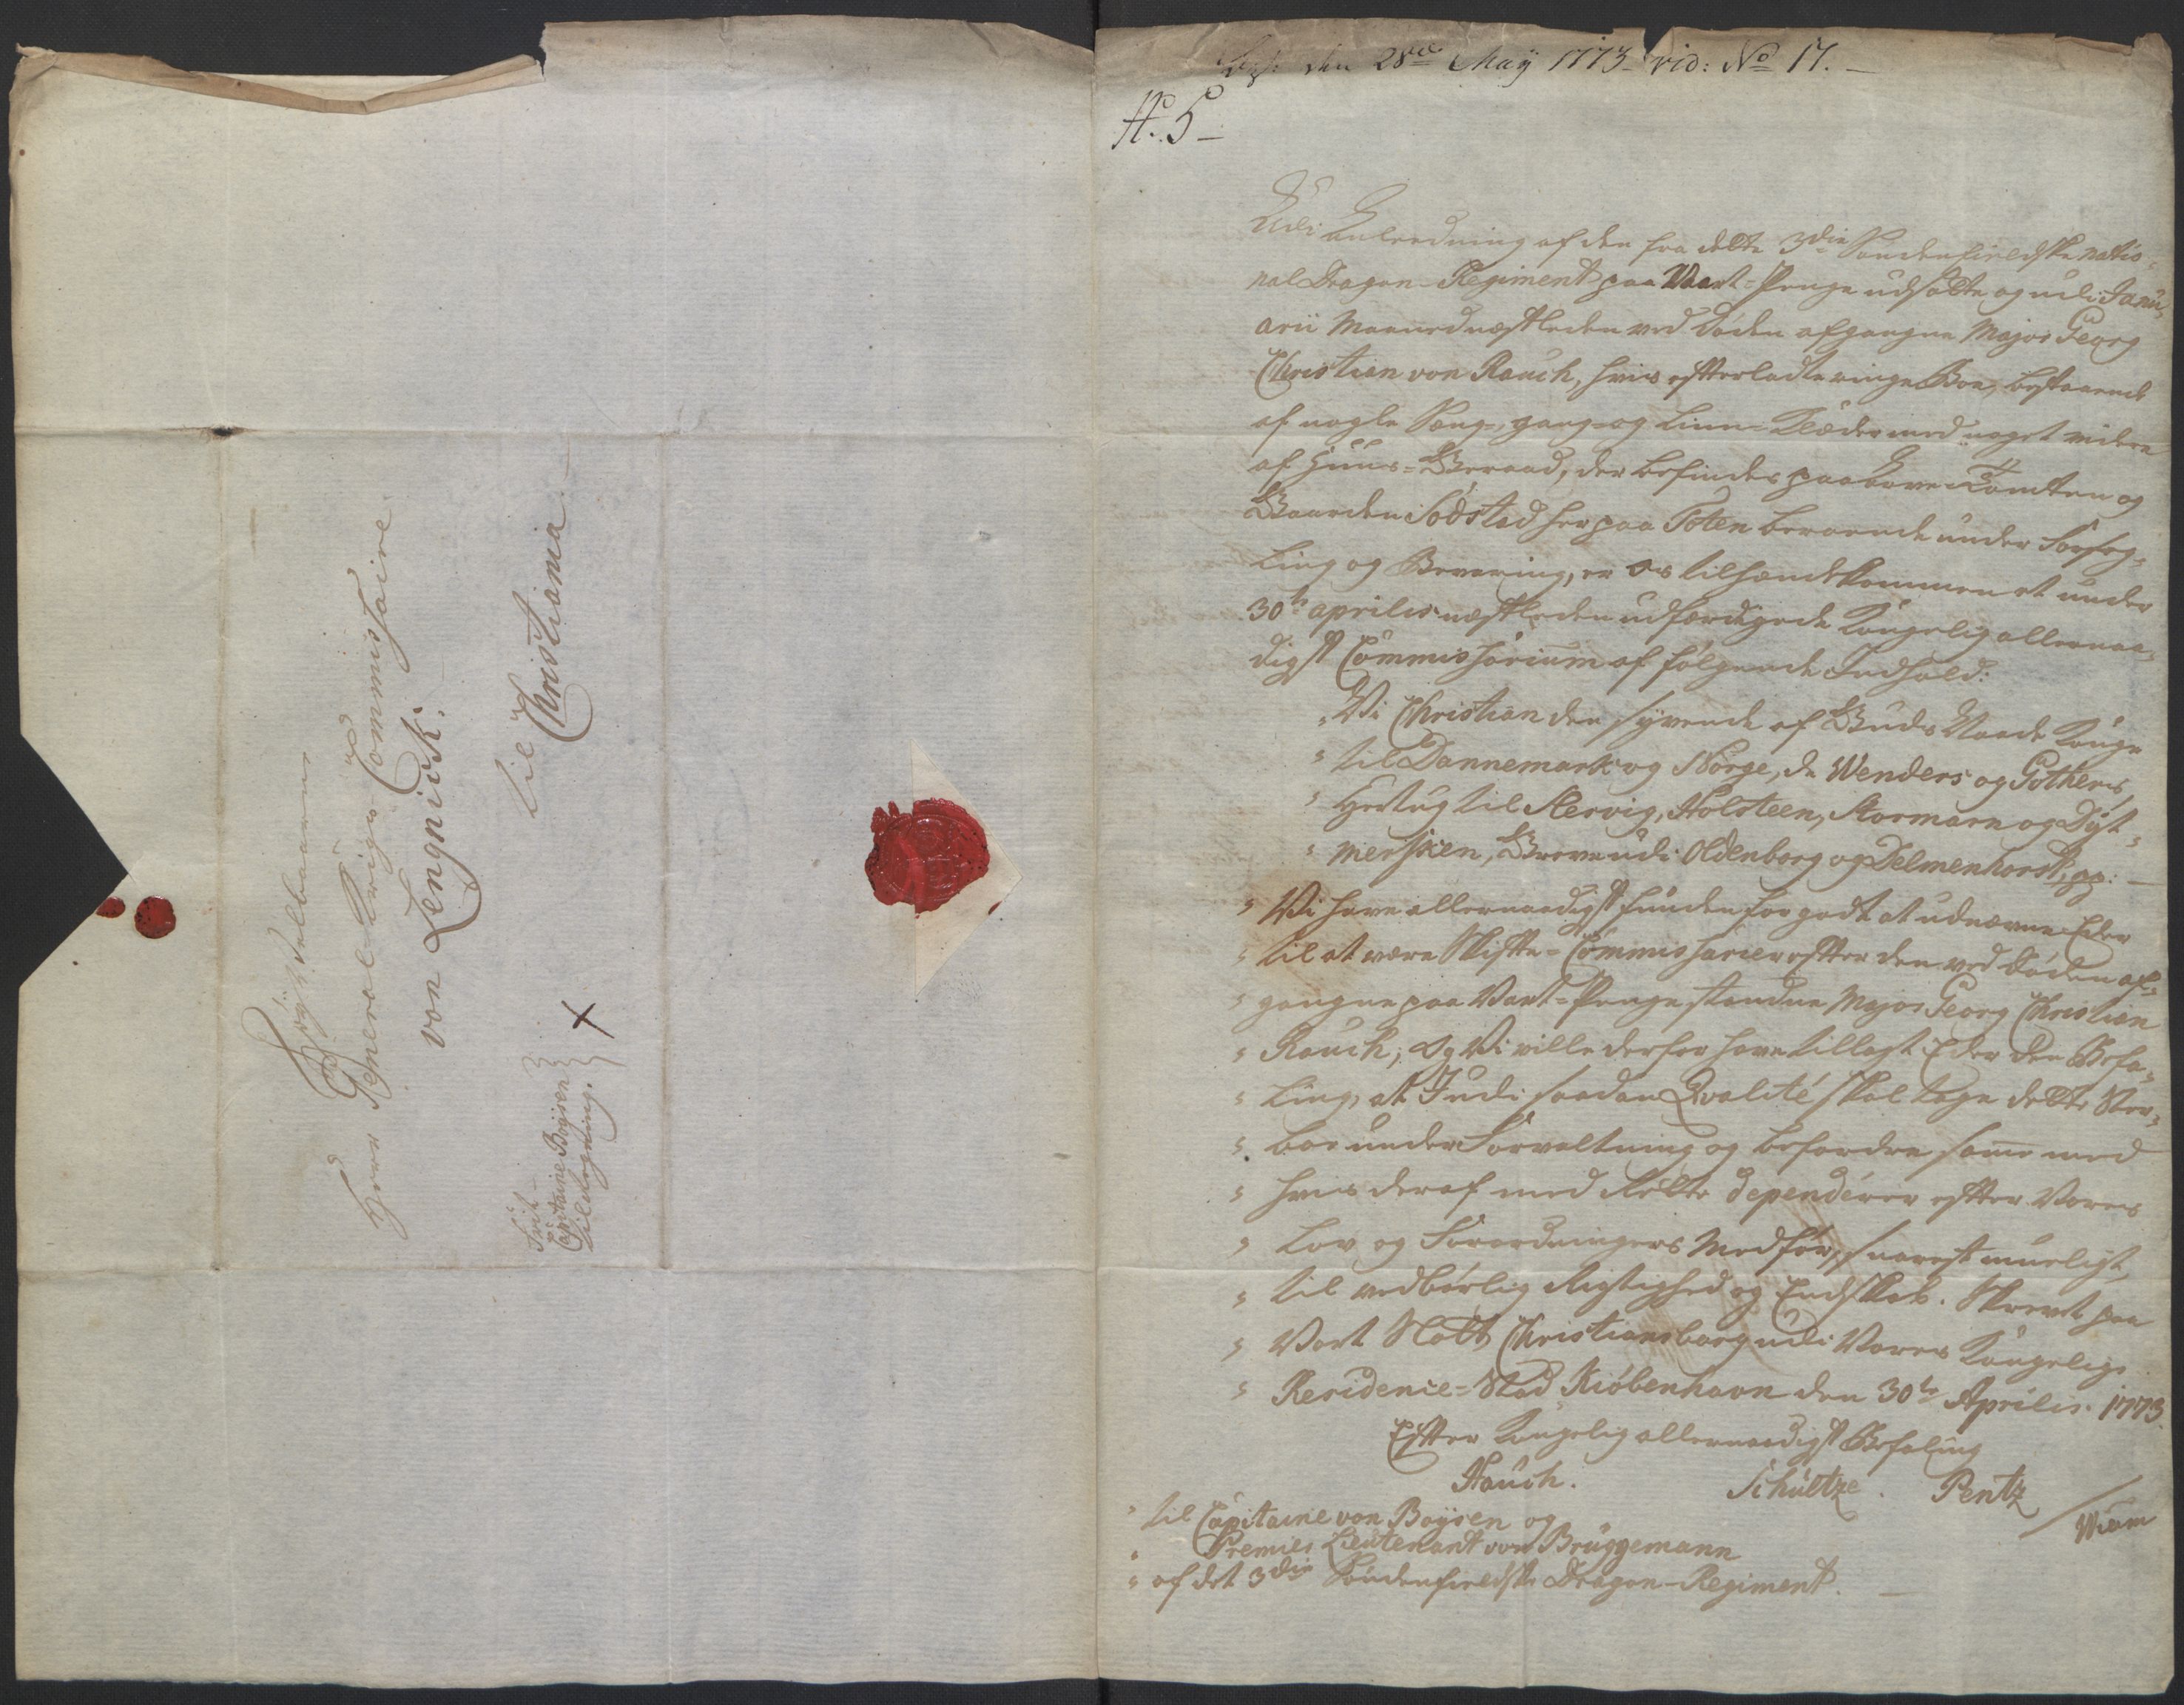 Højvelbaarne
Herr General-Krigs-Commissaire
von Lengnick.
til Christiania
Frit
Capitaine Boysen
Tilegning.
den 28de May 1773 vid: No 17.
A. 5
Udi Anleedning af den fra dette 3die Søndenfieldske natio-
nal Dragon-Regiment paa Wart-Penge udsatte og udi Janu-
arii Maaned næstleden ved Døden afgangne Major Georg
Christian von Rauch, hvis efterladte ringe Boe, bestaaende
af nogle Seng-, gang- og Linn-Klæder med noget videre
af Huus-Geraad, der befindes paa og
Gaarden Sødstad her paa Toten beroende under Forseg-
ling og Bevaring, er os tilhændekommen et under
30te aprilis næstleden udfærdigede Kongelig allernaa-
digst Commissorium af følgende Indhold:
" Vi Christian den syvende af Guds Naade Konge
" til Dannemark og Norge, de Wenders og Gothers,
" Hertug til Slesvig, Holsteen, Stormarn og Dyt-
" mersken, Greve udi Oldenborg og Delmenhorst, pp:
" Vi have allernaadigst funden for godt at udnævne Eder
" til at være Skifte-Commissarier efter den ved Døden af-
" gangne paa Vart-Penge standne Major Georg Christian
" Rauch; og Vi ville derfor have tillagt Eder den Befa-
" ling, at I udi saadan Qvalité skal tage dette Sterf-
" boe under Forvaltning og befordre samme med
" hvis deraf med Rette dependérer efter Vores
" Lov og Forordningers Medfør, snarest mueligt,
" til vedbørlig Rigtighed og Endskab. Skrevet paa
" Vort Slott Christiansborg udi Vores Kongelige
" Residence-Stad Kiøbenhavn den 30te Aprilis 1773.
Efter Kongelig allernaadigst Befaling
Hauch. Schultze. Pentz
Wium
" til Capitaine von Boysen og
" Premier Lieutenant von Brüggemann
" af det 3die Søndenfieldske Dragon-Regiment.